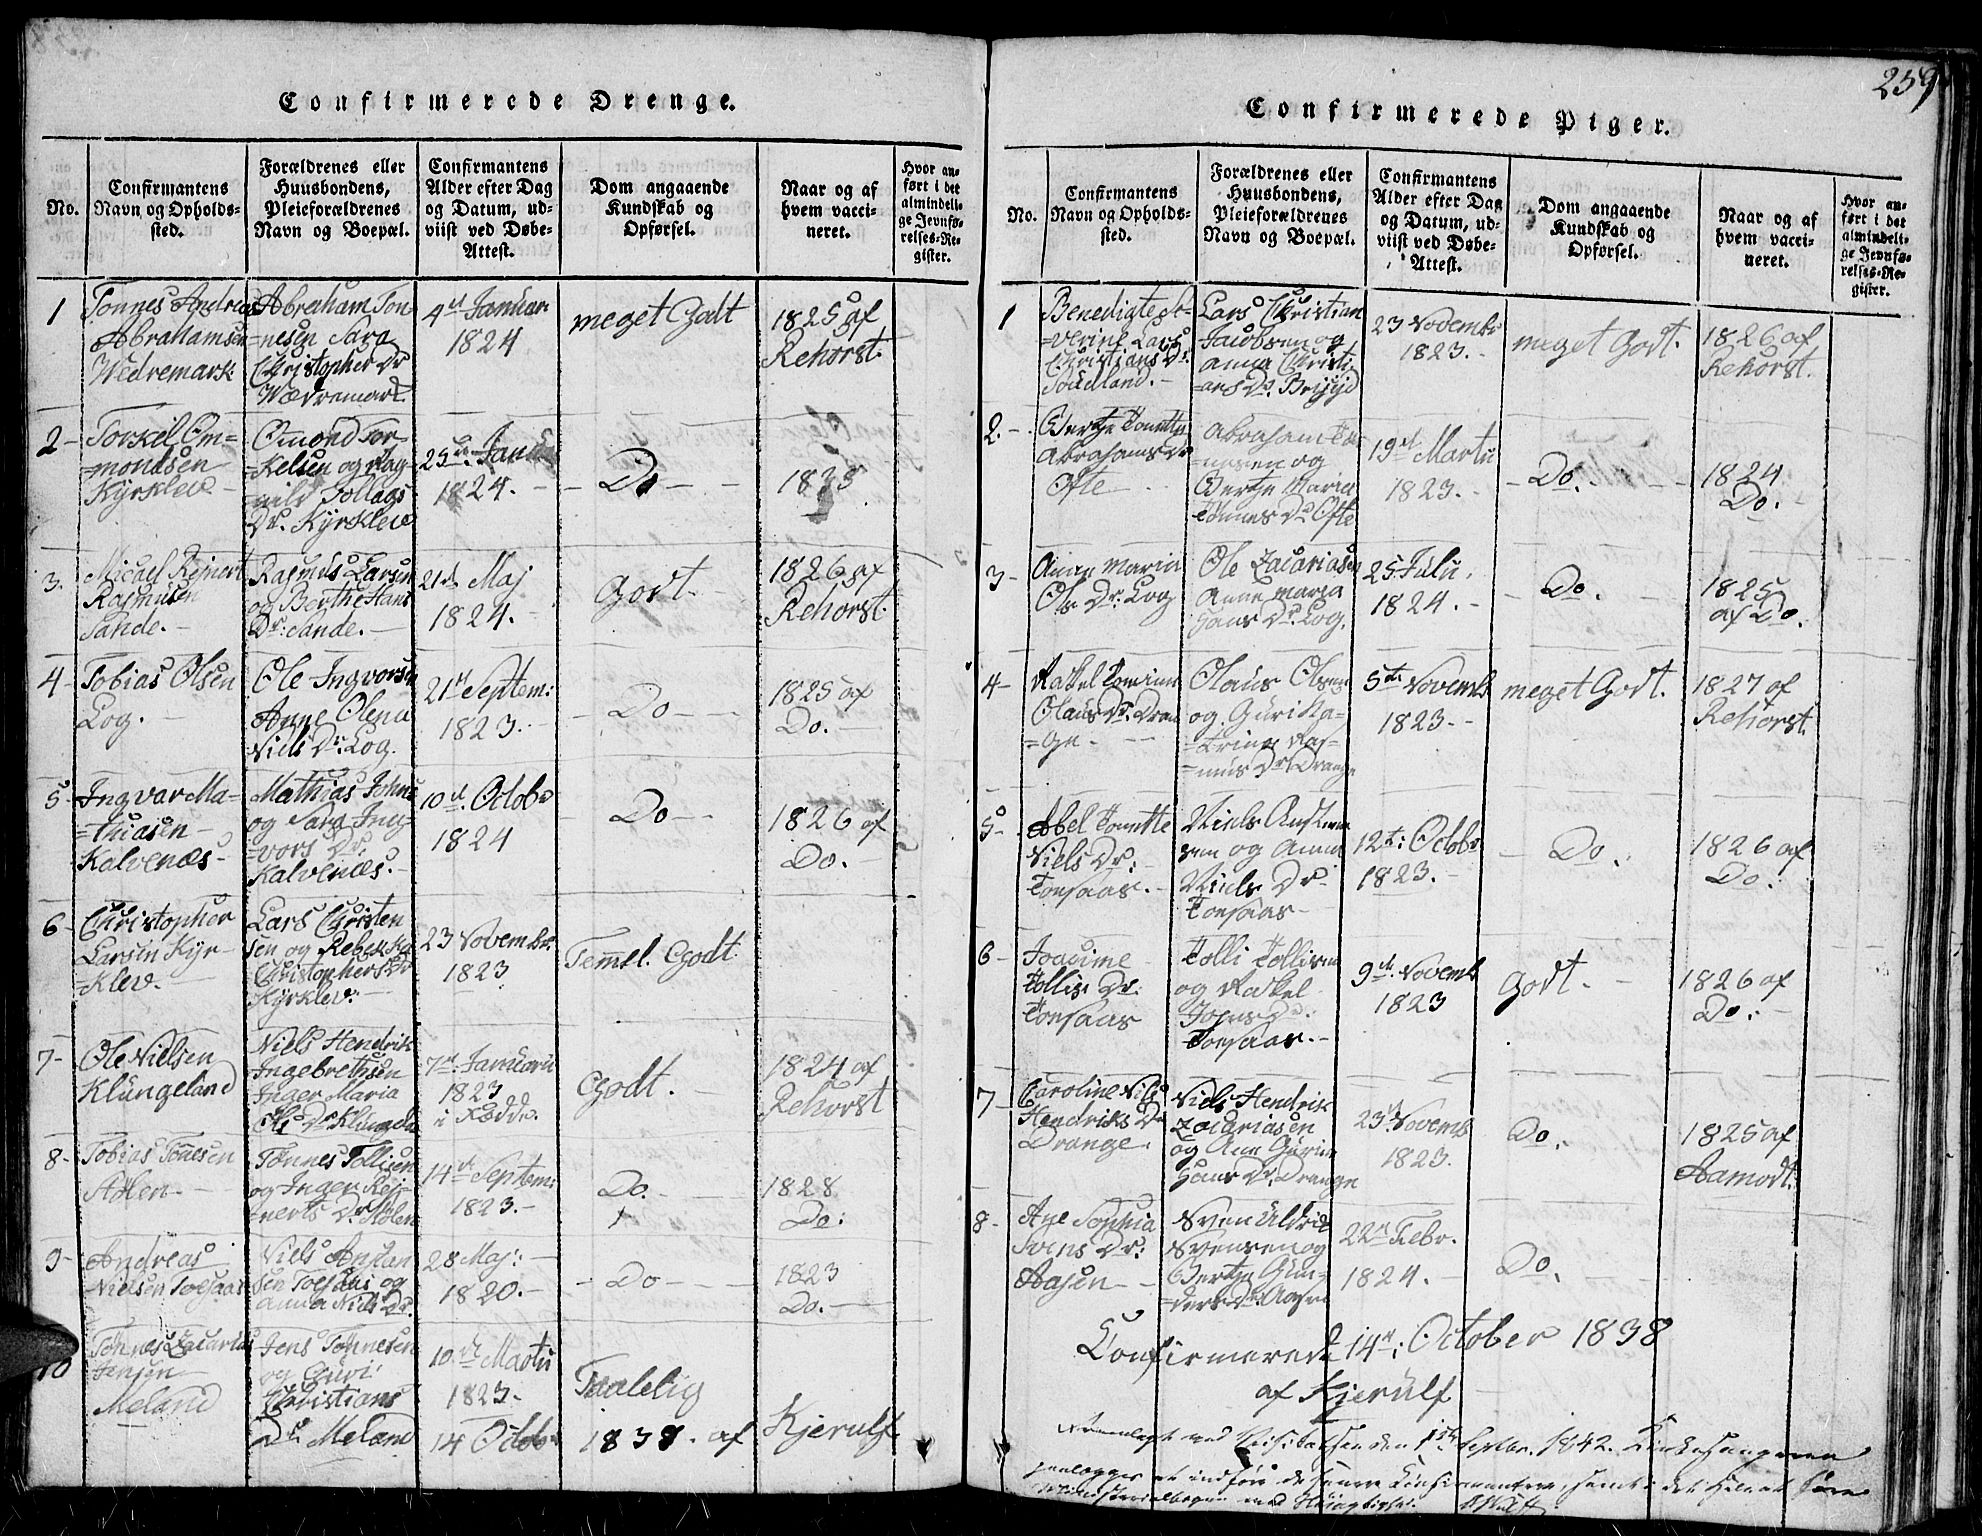 Confirmerede Drenge.
No.
Confirmantens
Navn og Opholds-
sted.
Forældrenes eller
Huusbondens,
Pleieforældrenes
Navn og Boepæl.
Confirmantens
Alder efter Dag
og Datum, ud-
viist ved Døbe-
Attest.
Dom angaaende
Kundskab og
Opførsel.
Naar og af
hvem vacci-
neret.
Hvor an-
ført i det
almindeli-
ge Jevnfø-
relses-Re-
gister.
1
Tønnes Andreas
Abrahamsen
Wedremark
Abreham Tøn-
=nesen Sara
Christopher Dr
Wædremark
4de Januar
1824
meget Godt
1825 af
Rehorst.
2-
Torkel Om=
=mondsen
Kyrklev -
Omond Tor-
=kelsen og Rag-
=nild Tollags
Dr. Kyrklev
25de Janu
1824. -
- Do - -
1825
3.
Micael Rejnert
Rasmusen
Sande. -
Rasmus Larsen
og Berthe Hans
Dr: Sande. -
21de Maj
1824. -
Godt. -
1826 af
Rehorst.
4-
Tobias Olsen
Log. -
Ole Ingvorsen
Anne Olena
Niels Dr. Log.
21de Septem:
1823. -
- Do - -
1825 af
Do. -
5-
Ingvar Ma=
=thiasen -
Kalvenæs -
Mathias Johns
og Sara Ing
=vors Dr.
Kalvenæs. -
10de Octobr
1824
- Do - -
1826 af
Do. -
6-
Christopher
Larsen Kyr-
Klev. -
Lars Christen
sen og Rebekka
Christophers Dr
Kyrklev: -
23 Novembr.
1823
Temel. Godt.
7-
Ole Nielsen
Klungeland
Niels Hendrik
Ingebrethsen
Inger Maria
Ols Dr Klungela
7de Januarii
1823
i Fædde.
Godt. -
1824 af
Rehorst
8-
Tobias Tønesen
Stølen -
Tønnes Tollisen
og Inger Rej-
=nerts Dr Stølen
14de Septem:
1823. -
Do. -
1828
Do:
9-
Andreas
Nielsen Torsaas
Niels Anstan
sen Torsaas og
Anna Niels Dr.
28 Maj: -
1820. -
- Do - -
1823
Do. -
10
Tønnes Zacarias
Jensen -
Meland
Jens Tønnesen
og Guri
Christians
Dr. Meland
10de Martii
1823. -
Taalelig
14 Octobr 1838. af Kjerulf
259
Confirmerede Piger.
No.
Confirmantens
Navn og Opholds-
sted.
Forældrenes eller
Huusbondens,
Pleieforældrenes
Navn og Boepæl.
Confirmantens
Alder efter Dag
og Datum, ud-
viist ved Døbe-
Attest.
Dom angaaende
Kundskab og
Opførsel.
Naar og af
hvem vacci-
neret.
Hvor an-
ført i det
almindeli-
ge Jevnfø-
relses-Re-
gister.
1
Lars
Christians Dr.
Lars Christian
Jacobsen og
Anna Christi
=ans Dr.
23 Novembr
1823. -
meget Godt.
1826 af
Rehorst.
2. -
Bertje Tonette
Abrahams Dr
Ofte - -
Abraham Tøn
=nesen og
Bertje Maria
Tønnes Dr Ofte
19de Martii
1823. -
- Do. - -
1824
Do. -
3-
Anne Maria
Ols Dr: Log
Ole Zacariasen
Anne Maria
Hans Dr. Log.
25 Julii,
1824. -
- Do. -
1825
af Do.
4-
Rakel
Olaus Dr. Dran
=ge. - -
Olaus Olsen
og Guri Ka=
=trina Ras=
=mus Dr Drange
5te Novembr
1823. -
meget Godt.
1827 af
Rehorst.
5-
Abel Tonette
Niels Dr: -
Torsaas. -
Niels Ansten
sen og Anna
Niels Dr.
Torsaas -
12te: Octobr
1823. -
- Do. -
1826 af
Do. -
6-
Joacime
Tollis Dr:
Torsaas
Tolli Tollisen
og Rakel
Johns Dr:
Torsaas. -
9de Novembr
1823
Godt. -
1826 af
Do: -
7-
Caroline Niels
Hendriks Dr
Drange.
Niels Hendrik
Zacariasen
og Ane Gurine
Hans Dr. Drange
23de Novemb
1823.
Do.
1825 af
Aamodt.
8-
Ane Sophia
Svens Dr:
Aasen - -
Sven Uldrik
Svensen og
Bertje Gun=
ders Dr. Aasen
22de Febr.
1824. -
Do. -
Confirmerede 14de: October 1838
af Kjerulf -
Fremlagt ved Visitatsen den 1ste Septbr. 1842. Kirkesangeren
paalægges at indføre de Confirmanterne, samt i det Hele at føre
Ministerialbogen med Nøiagtighed.